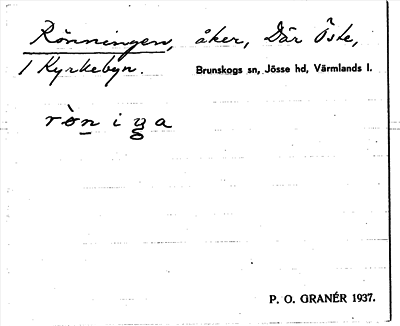 Rönningen, åker, Där Öste,
1 Kyrkebyn. Brunskogs sn, Jösse hd, Värmlands l.
P. O. GRANÉR 1937.